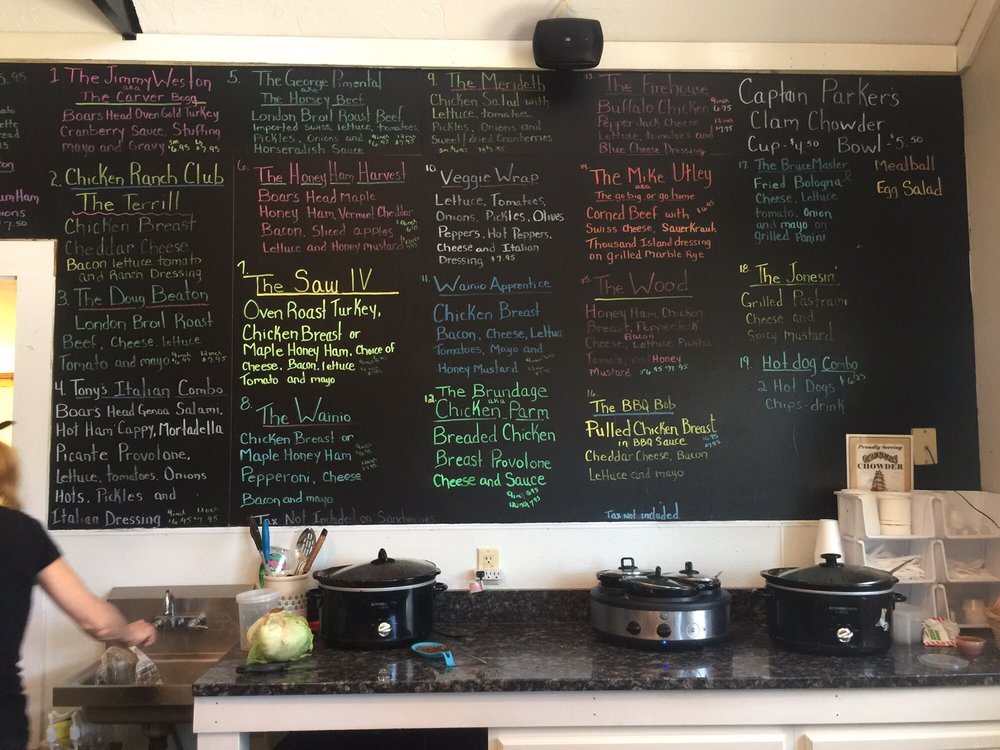 5.95
1. The Jimmy Weston
aka
The Carver Bogg
Boars Head Oven Gold Turkey
Cranberry Sauce, Stuffing
mayo and Gravy sm 6.95 lg $7.95
2. Chicken Ranch Club
The Terrill
Chicken Breast
Cheddar Cheese,
Bacon lettuce tomato
and Ranch Dressing
3. The Doug Beaton
London Broil Roast
Beef, Cheese, lettuce
Tomato and mayo 9 inch 6.95 12 inch $7.95
4. Tony's Italian Combo
Boars Head Genoa Salami,
Hot Ham Cappy, Mortadella
Picante Provolone,
Lettuce, tomatoes, Onions
Hots, Pickles and
Italian Dressing 9 inch $6.95 12 inch $7.95
Ham
ions
$7.50
5. The George Pimental
aka
The Horsey Beef
London Broil Roast Beef,
Imported swiss, lettuce, tomatoes,
Pickles, Onions and
Horseradish Sauce 9 inch 6.95 12 inch $7.95
6. The Honey Ham Harvest
Boars Head Maple
Honey Ham, Vermont Cheddar
Bacon, Sliced apples
Lettuce and Honey mustard
7. The Saw IV
Oven Roast Turkey,
Chicken Breast or
Maple Honey Ham, Choice of
Cheese, Bacon, lettuce
Tomato and mayo
8. The Wainio
Chicken Breast or
Maple Honey Ham
Pepperoni, Cheese
Bacon and mayo
Tax Not Included on Sandwiches
9. The Merideth
Chicken Salad with
Lettuce, tomatoes,
Pickles, Onions and
Sweet/dried Cranberries
10. Veggie Wrap
Lettuce, Tomatoes,
Onions, Pickles, Olives
Peppers, Hot Peppers,
Cheese and Italian
Dressing $7.95
11. Wainio Apprentice
Chicken Breast
Bacon, Cheese, Lettuce
Tomatoes, Mayo and
Honey Mustard
12. The Brundage
aka
Chicken Parm
Breaded Chicken
Breast Provolone
Cheese and Sauce
9 inch 6.95
12 inch 7.95
13. The Firehouse
Buffalo Chicken 9 inch 6.95
Pepper Jack Cheese 12 inch $7.95
Lettuce, tomatoes and
Blue Cheese Dressing
14. The Mike Utley
aka
The go big or go home
Corned Beef with
Swiss cheese, Sauerkraut
Thousand Island dressing
on grilled Marble Rye
15. The Wood
Honey Ham, Chicken
Breast, Pepper Jack
Bacon
Cheese, Lettuce, Pickles
Tomato, and Honey
Mustard $6.95 $7.95
16. The BBQ Bob
Pulled Chicken Breast
in BBQ Sauce
Cheddar Cheese, Bacon
Lettuce and mayo
Tax not included
Captain Parkers
Clam Chowder
Cup - $4.50 Bowl - $5.50
17. The Bruce Master
Fried Bologna &
Cheese, Lettuce
tomato, Onion
and mayo on
grilled Panini
Meatball
Egg Salad
18. The Jonesin'
Grilled Pastrami
Cheese and
Spicy Mustard
19. Hot dog Combo
2 Hot Dogs
Chips - drink
Proudly Serving
CHOWDER